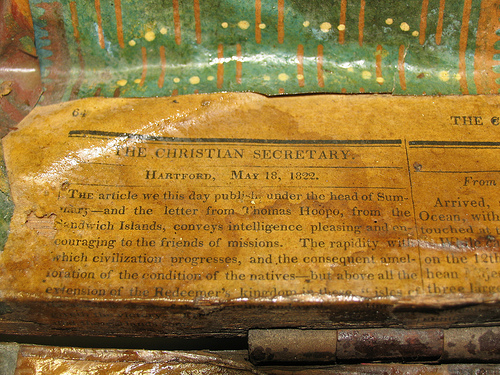 64
THE
THE CHRISTIAN SECRETARY.
HARTFORD, MAY 18, 1822.
THE article we this day publish under the head of Sum-
mary—and the letter from Thomas Hoopo, from the
Sandwich Islands, conveys intelligence pleasing and en-
couraging to the friends of missions. The rapidity with
which civilization progresses, and the consequent amel-
ioration of the condition of the natives—but above all the
extension of the Redeemer's kingdom
From
Arrived,
Ocean, with
touched at
on the 12th
three large